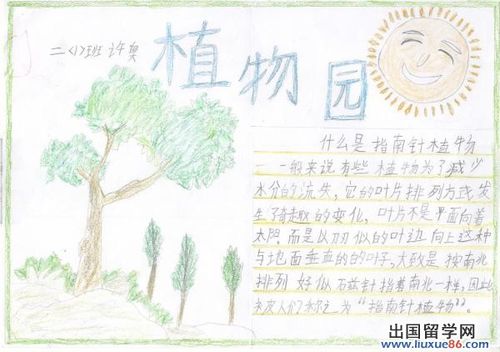 二〈1〉班 许奥
植物园
什么是指南针植物
一般来说有些植物为了减少
水分的流失,它的叶片排列方式发
生了奇趣的变化,叶片不是平面向着
太阳,而是以刀似的叶边向上这种
与地面垂直的的叶子,大致是按南北
排列好似石兹针指着南北一样,因此
人们称之为“指南针植物”。
出国留学网
www.liuxue86.com